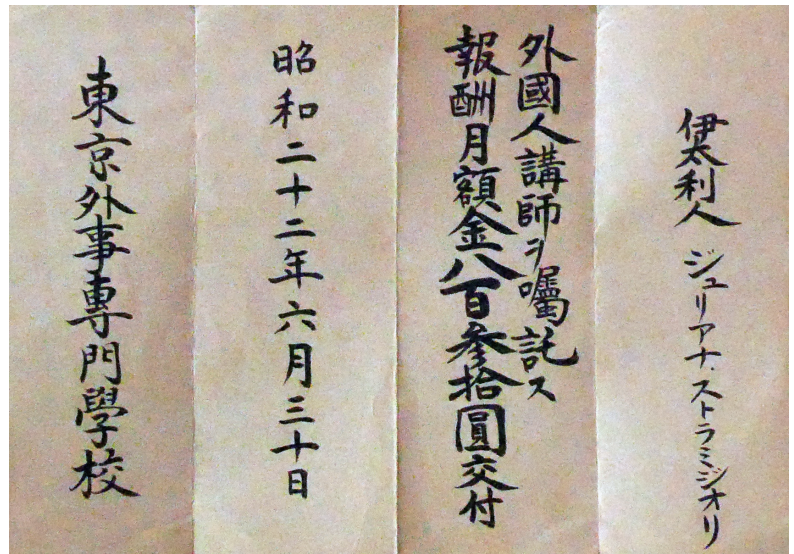 伊太利人 ジュリアナ・ストラミジオリ
外國人講師ヲ囑託ス
報酬月額金八百参拾圓交付
昭和二十二年六月三十日
東京外事専門學校